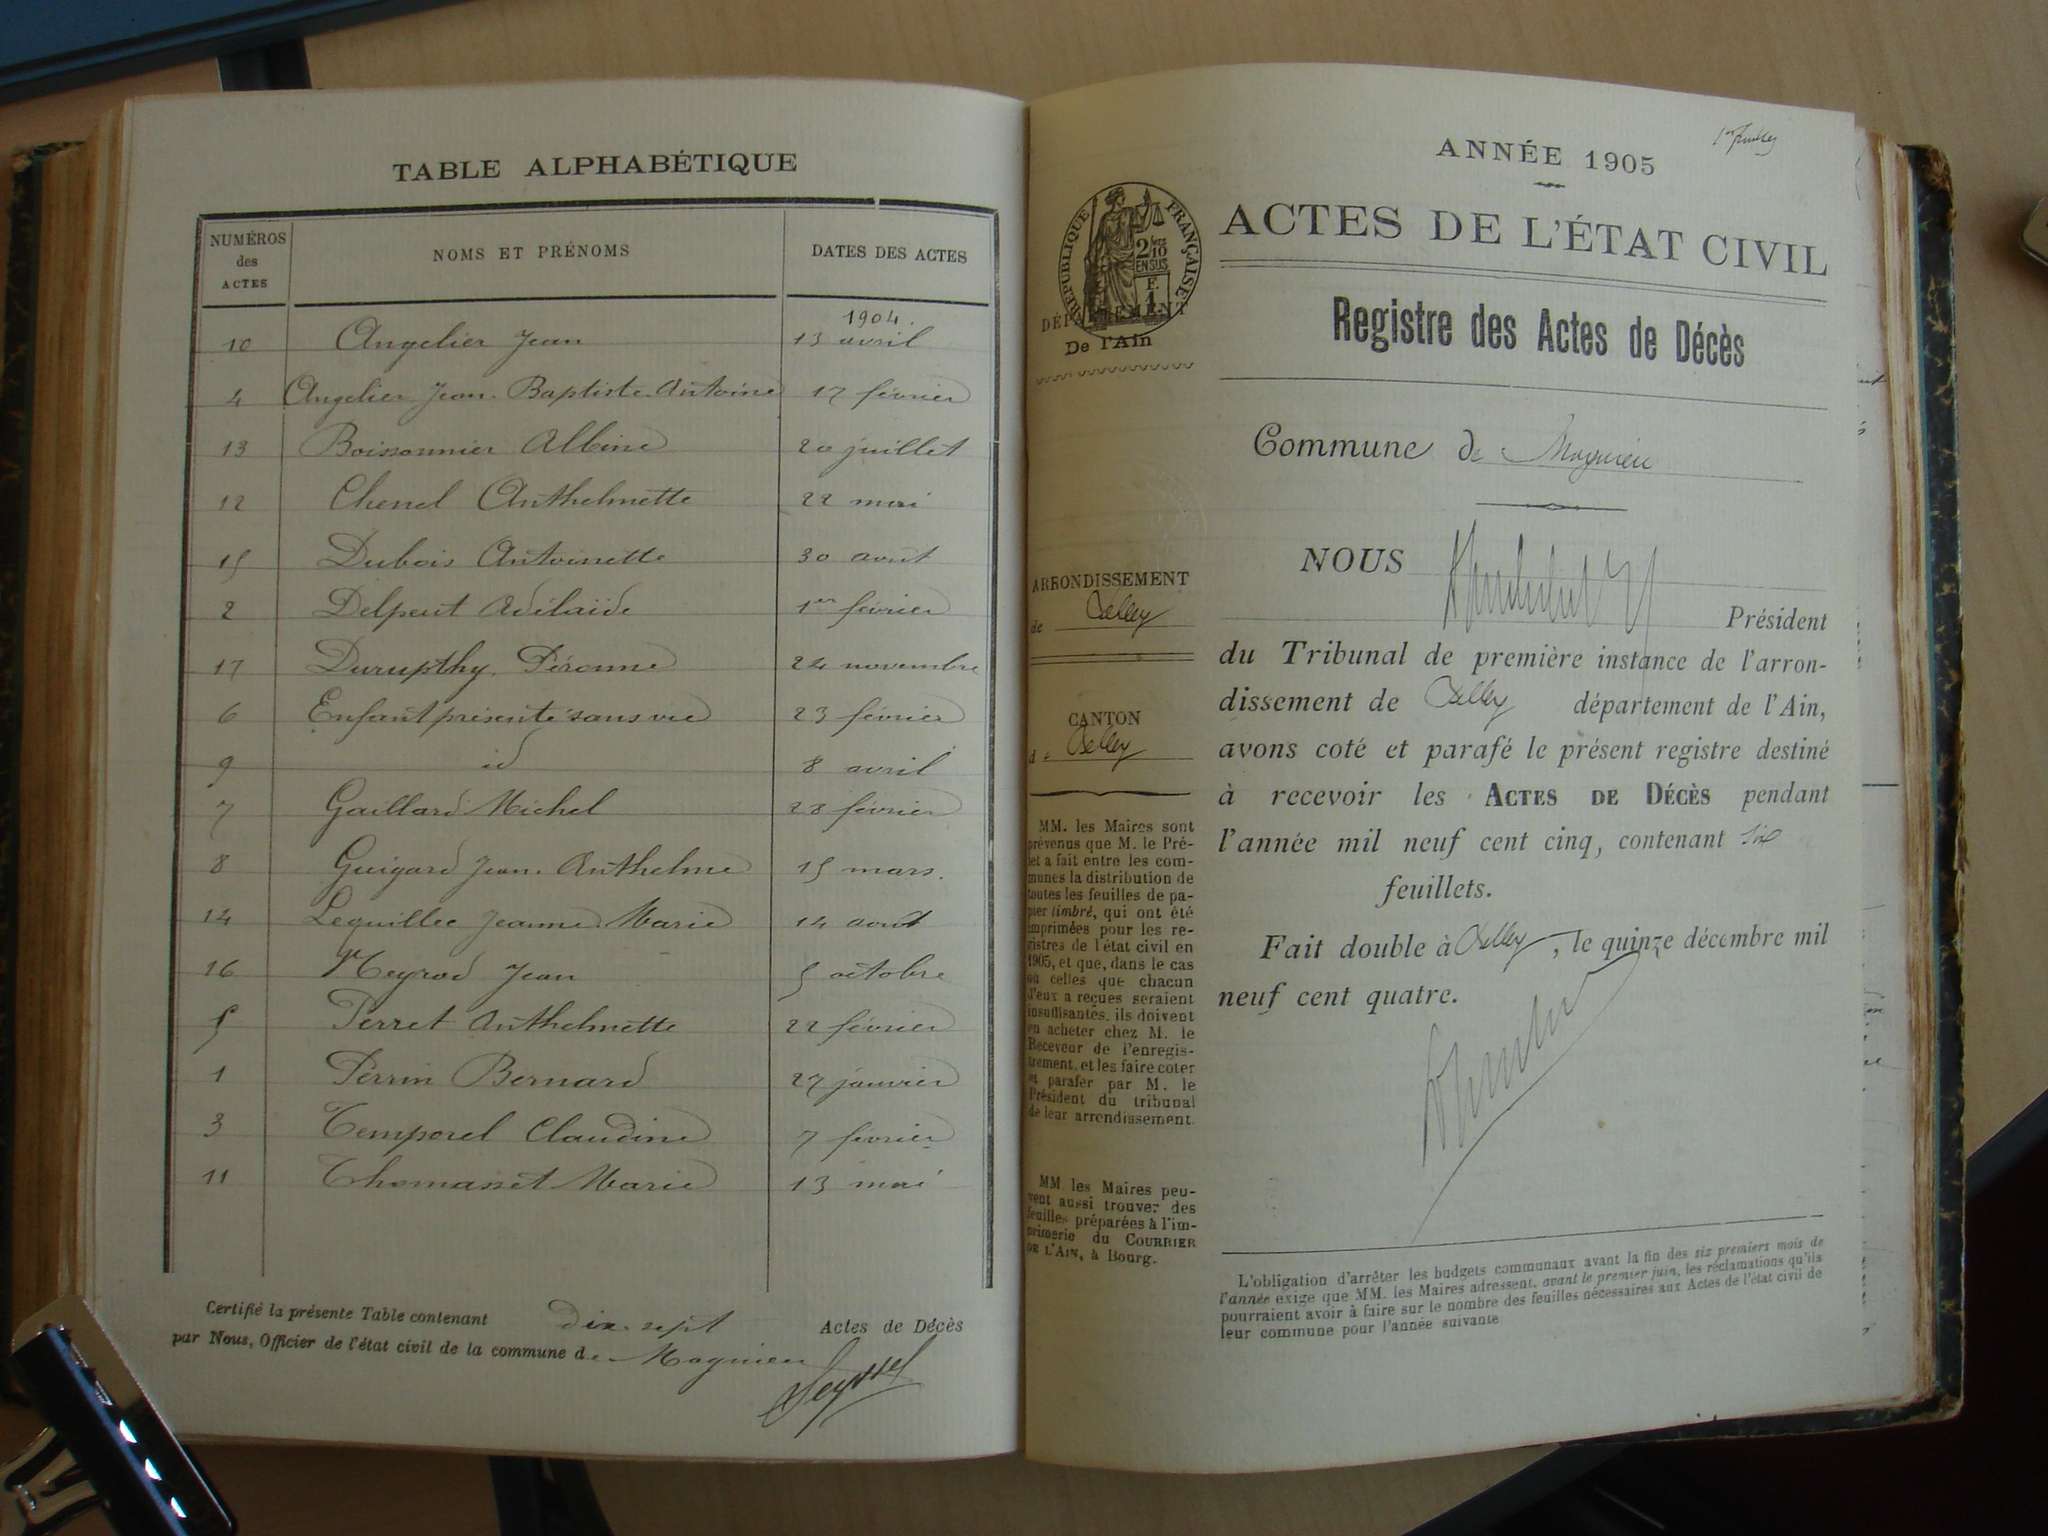 TABLE ALPHABÉTIQUE
NUMÉROS des ACTES NOMS ET PRÉNOMS DATES DES ACTES
1904.
10 Angelier Jean 13 avril
4 Angelier Jean-Baptiste Antoine 17 février
13 Boissonnier Albine 20 juillet
12 Chenel Anthelmette 22 mai
15 Dubois Antoinette 30 août
2 Delpeut Adélaïde 1er février
17 Durupthy Péronne 24 novembre
6 Enfant présenté sans vie 23 février
9 id 8 avril
7 Gaillard Michel 28 février
8 Guigard Jean-Anthelme 15 mars.
14 Lequillec Jeanne Marie 14 août
16 Meyrod Jean 5 octobre
5 Perret Anthelmette 22 février
1 Perrin Bernard 27 janvier
3 Temporel Claudine 7 février
11 Thomasset Marie 13 mai
Certifié la présente Table contenant dix-sept Actes de Décès
par Nous, Officier de l'état civil de la commune de Magnieu
1er
ANNÉE 1905
ACTES DE L'ÉTAT CIVIL
RÉPUBLIQUE FRANÇAISE
2/10
EN SUS
F.
1
DÉPARTEMENT
De l'Ain
Registre des Actes de Décès
Commune de Magnieu
ARRONDISSEMENT
de Belley
CANTON
de Belley
MM. les Maires sont
prévenus que M. le Pré-
fet a fait entre les com-
munes la distribution de
toutes les feuilles de pa-
pier timbré, qui ont été
imprimées pour les re-
gistres de l'état civil en
1905, et que, dans le cas
où celles que chacun
d'eux a reçues seraient
insuffisantes, ils doivent
en acheter chez M. le
Receveur de l'enregis-
trement, et les faire coter
et parafer par M. le
Président du tribunal
de leur arrondissement.
MM. les Maires peu-
vent aussi trouver des
feuilles préparées à l'im-
primerie du COURRIER
DE L'AIN, à Bourg.
NOUS
Président
du Tribunal de première instance de l'arron-
dissement de Belley département de l'Ain,
avons coté et parafé le présent registre destiné
à recevoir les ACTES DE DÉCÈS pendant
l'année mil neuf cent cinq, contenant six
feuillets.
Fait double à Belley, le quinze décembre mil
neuf cent quatre.
L'obligation d'arrêter les budgets communaux avant la fin des six premiers mois de
l'année exige que MM. les Maires adressent, avant le premier juin, les réclamations qu'ils
pourraient avoir à faire sur le nombre des feuilles nécessaires aux Actes de l'état civil de
leur commune pour l'année suivante